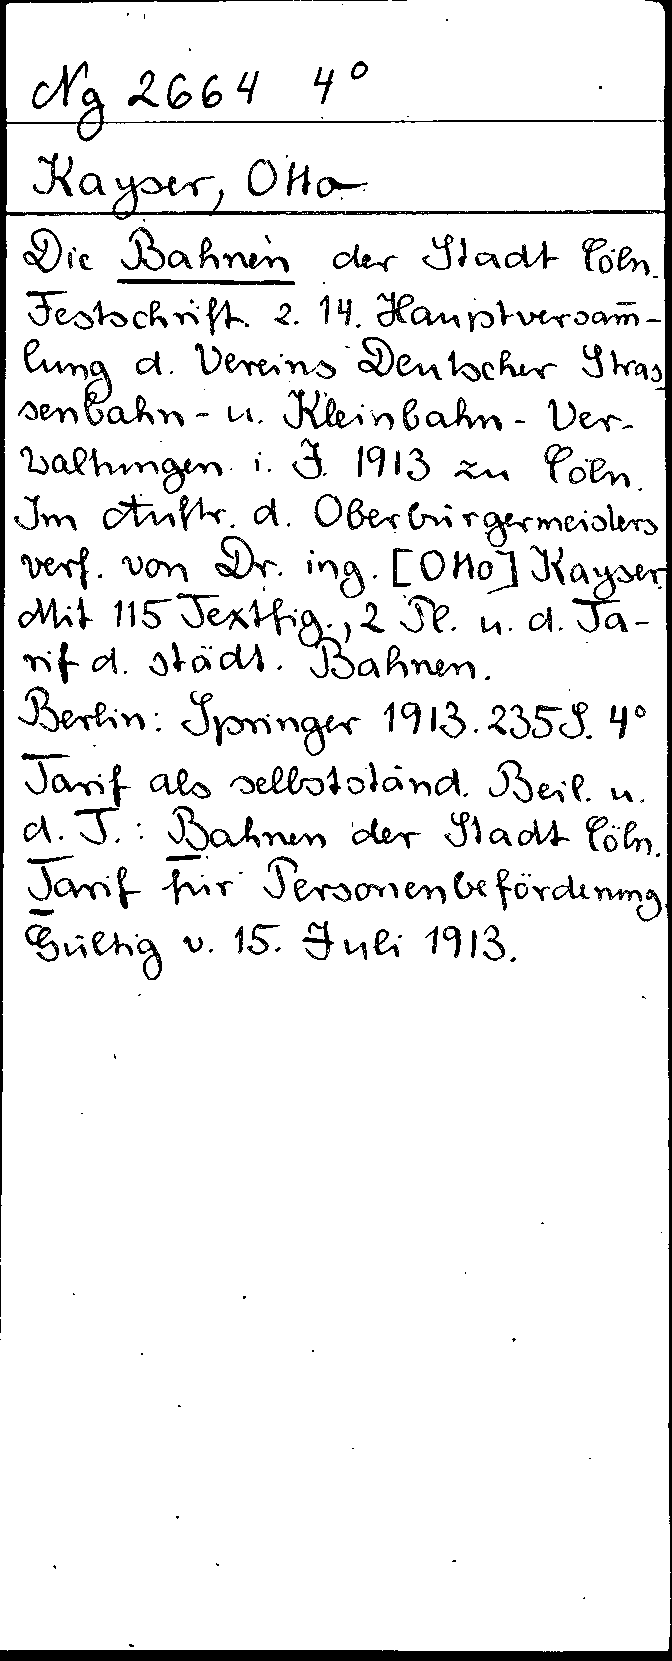 Ng 2664 4°
Kayser, Otto
Die Bahnen der Stadt Cöln.
Festschrift z. 14. Hauptversam̄-
lung d. Vereins Deutscher Stras
senbahn- u. Kleinbahn-Ver-
waltungen i. J. 1913 zu Cöln.
Im Auftr. d. Oberbürgermeisters
verf. von Dr. ing. [Otto] Kayser
Mit 115 Textfig., 2 Pl. u. d. Ta-
rif d. städt. Bahnen.
Berlin: Springer 1913. 235 S. 4°
Tarif als selbstständ. Beil. u.
d. T.: Bahnen der Stadt Cöln.
Tarif für Personenbeförderung.
Gültig v. 15. Juli 1913.